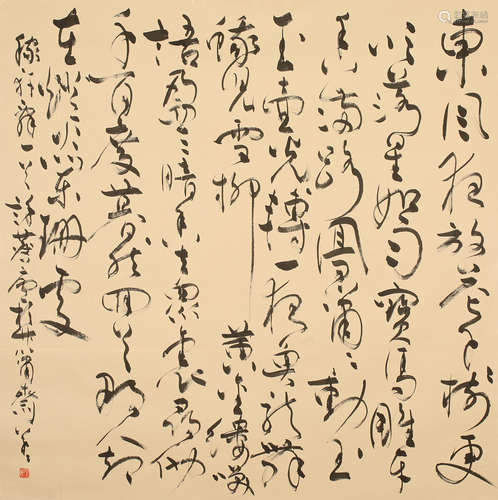 東風夜放花千樹更
吹落星如雨寶馬雕車
香滿路鳳簫動玉
玉壺光轉一夜魚龍舞
蛾兒雪柳黃金縷笑
語盈〻暗香去眾裏尋他
千百度驀然回首那人却
在燈火闌珊處
稼軒詞一首